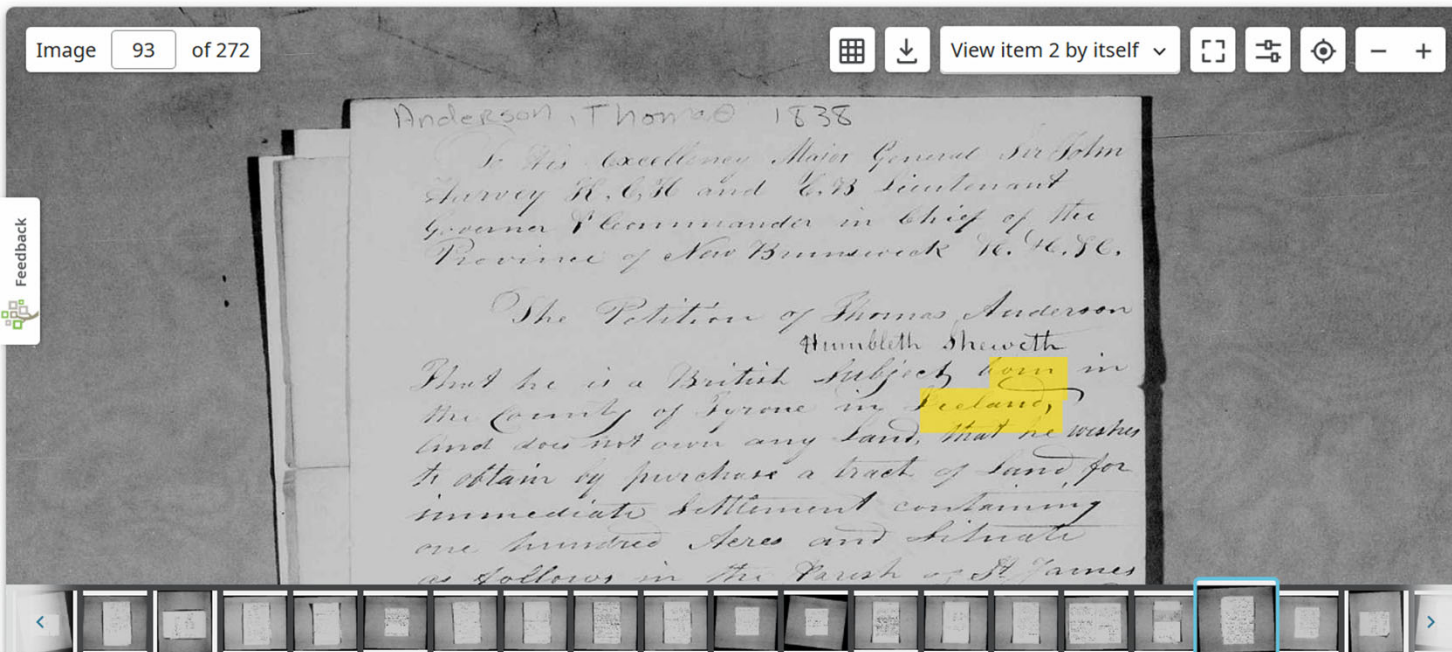 Image 93 of 272
View item 2 by itself
Feedback
Anderson, Thomas 1838
To His Excellency Major General Sir John
Harvey K.C.H and C.B Lieutenant
Governor & Commander in Chief of the
Province of New Brunswick &c. &c. &c.
The Petition of Thomas Anderson
Humbleth Sheweth
That he is a British Subject born in
the County of Tyrone in Ireland,
and does not own any Land, that he wishes
to obtain by purchase a tract of Land, for
immediate Settlement containing
one hundred Acres and Situate
as follows in the Parish of St James